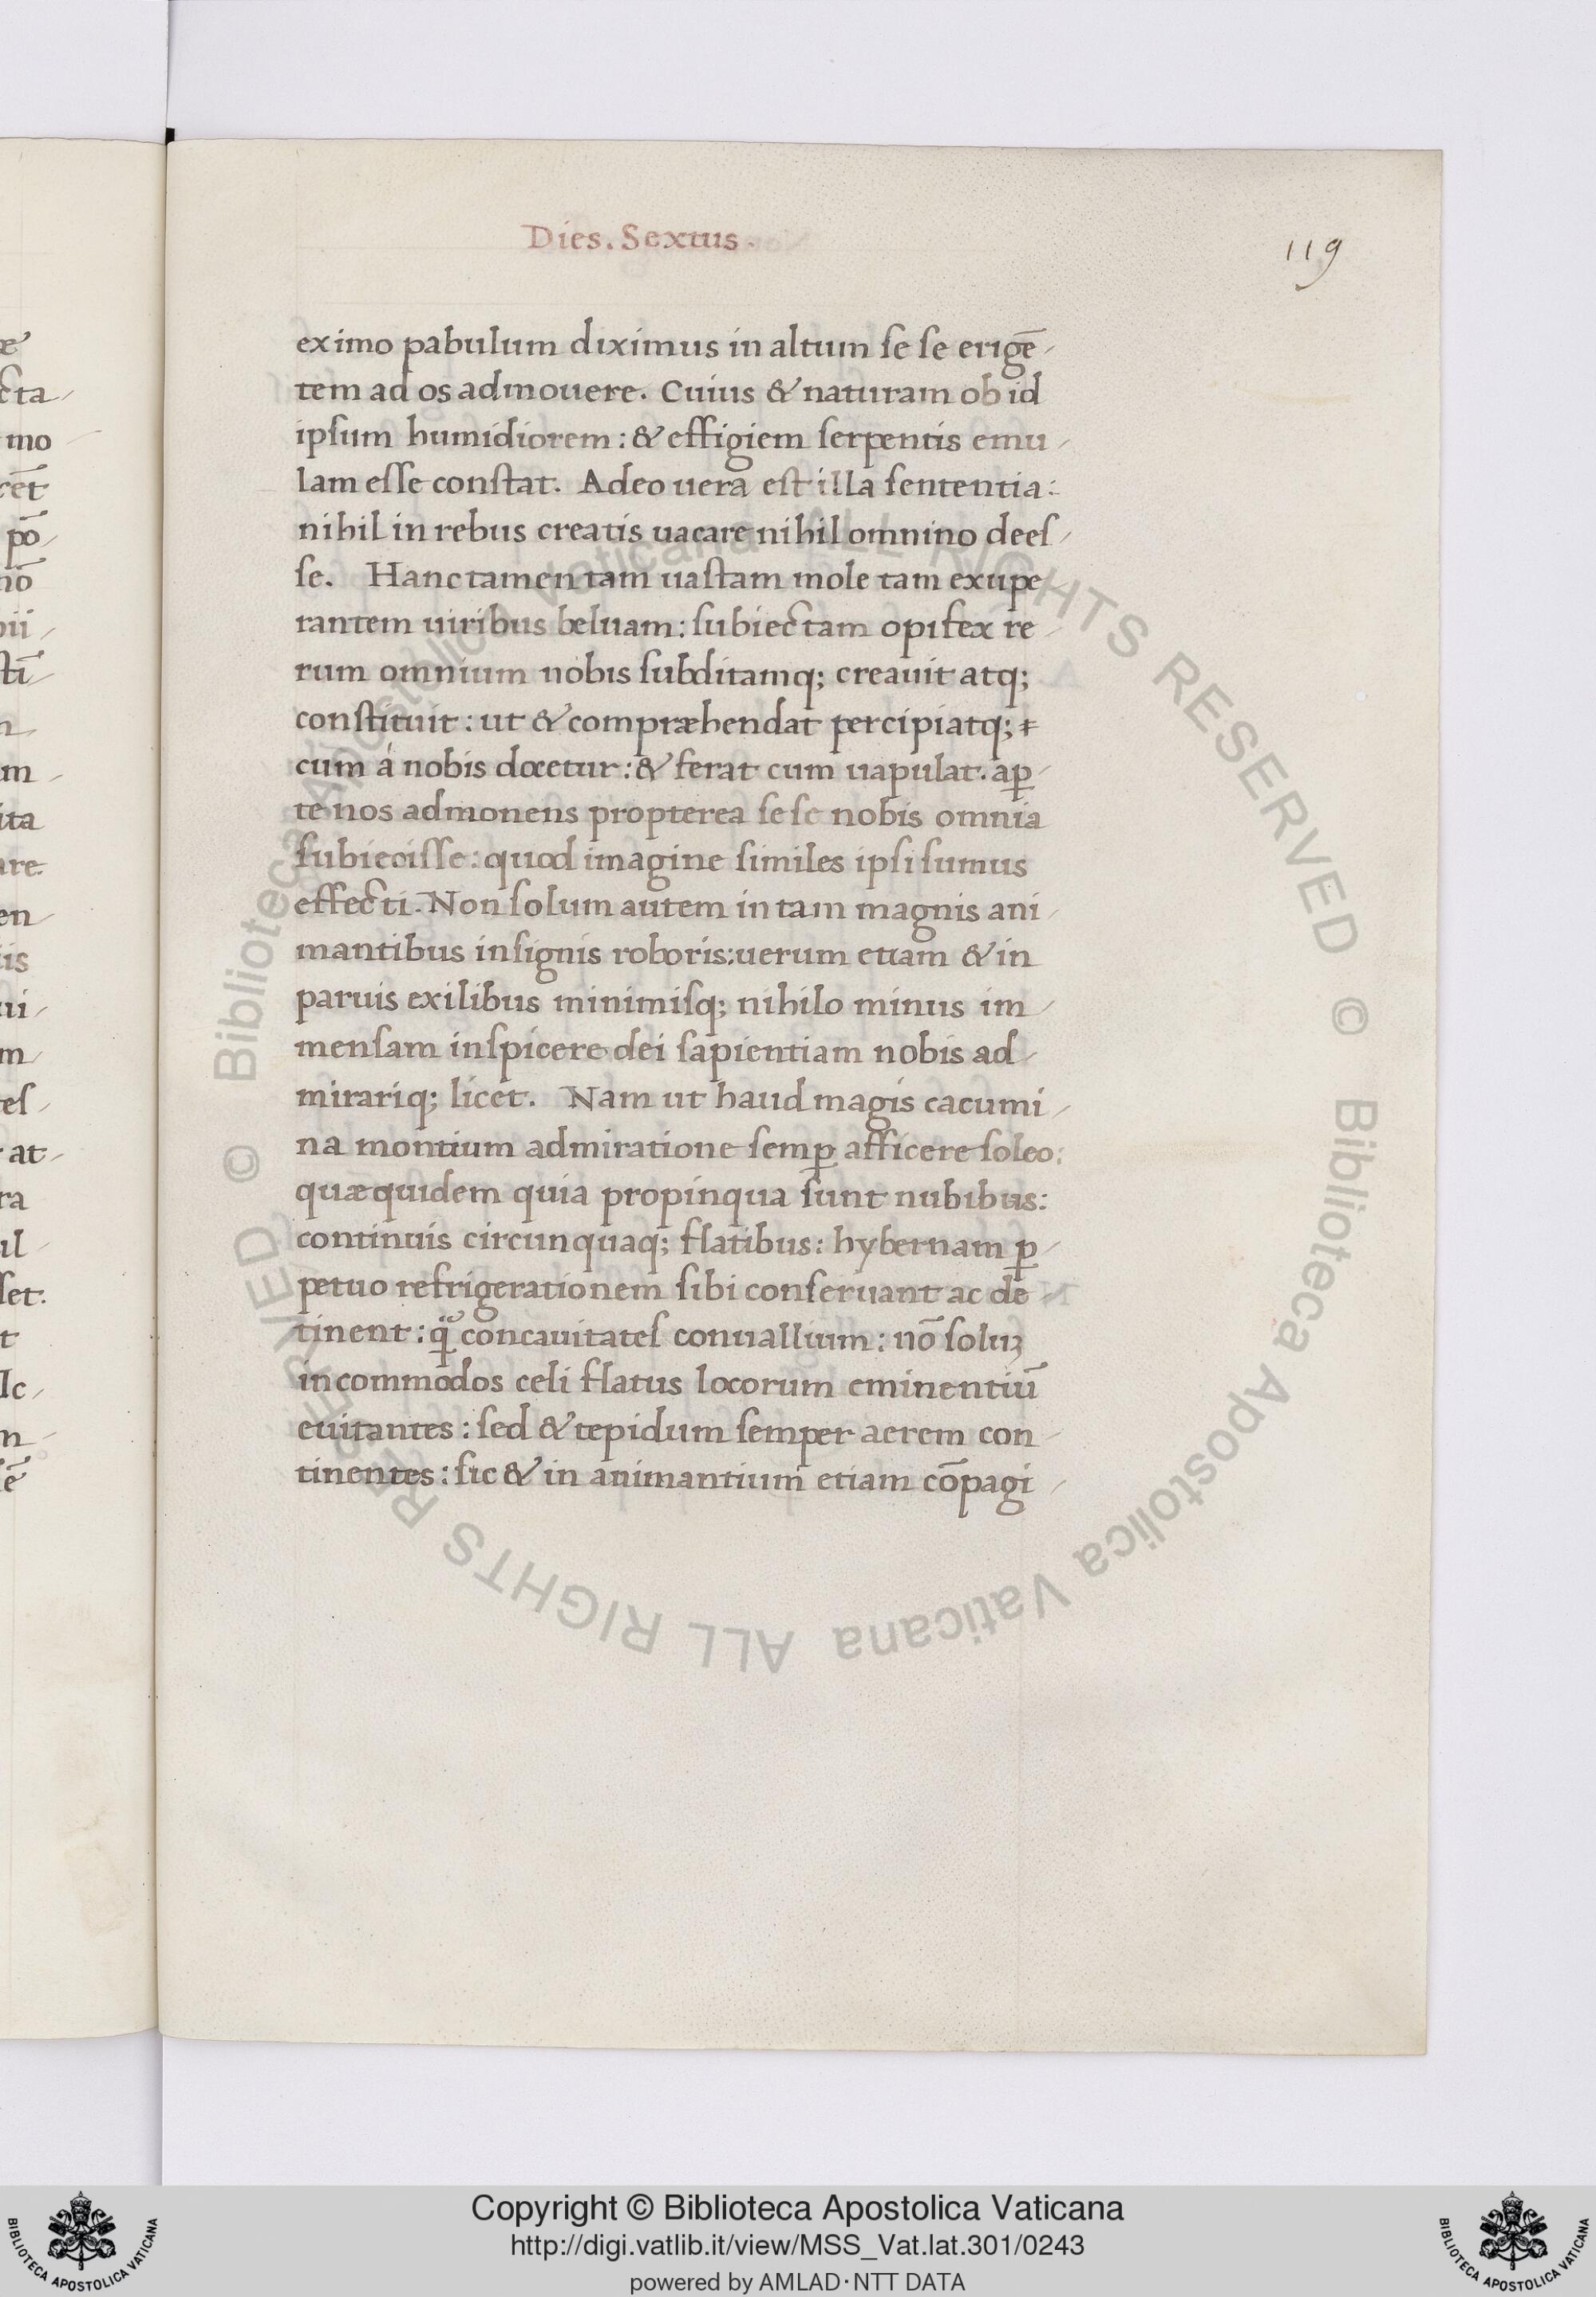 Dies. Sextus.
119
eximo pabulum diximus in altum se se erigē-
tem ad os admouere. Cuius & naturam ob id
ipsum humidiorem: & effigiem serpentis emu-
lam esse constat. Adeo uera est illa sententia:
nihil in rebus creatis uacare nihil omnino dees-
se. Hanc tamen tam uastam mole tam exupe-
rantem uiribus beluam: subiectam opifex re-
rum omnium nobis subditamq; creauit atq;
constituit: ut & compræhendat percipiatq;
cum á nobis docetur: & ferat cum uapulat. aꝑ-
te nos admonens propterea se se nobis omnia
subiecisse: quod imagine similes ipsi sumus
effecti. Non solum autem in tam magnis ani-
mantibus insignis roboris: uerum etiam & in
paruis exilibus minimisq; nihilo minus im-
mensam inspicere dei sapientiam nobis ad-
mirariq; licet. Nam ut haud magis cacumi-
na montium admiratione semꝑ afficere soleo:
quæ quidem quia propinqua sunt nubibus:
continuis circunquaq; flatibus: hybernam ꝑ-
petuo refrigerationem sibi conseruant ac de-
tinent: concauitates conuallium: nō soluꝫ
incommodos celi flatus locorum eminentiū
euitantes: sed & tepidum semper aerem con-
tinentes: sic & in animantium etiam cōpagi-
© Biblioteca Apostolica Vaticana ALL RIGHTS RESERVED © Biblioteca Apostolica Vaticana ALL RIGHTS RESERVED
Copyright © Biblioteca Apostolica Vaticana
http://digi.vatlib.it/view/MSS_Vat.lat.301/0243
powered by AMLAD·NTT DATA
BIBLIOTECA APOSTOLICA VATICANA
BIBLIOTECA APOSTOLICA VATICANA